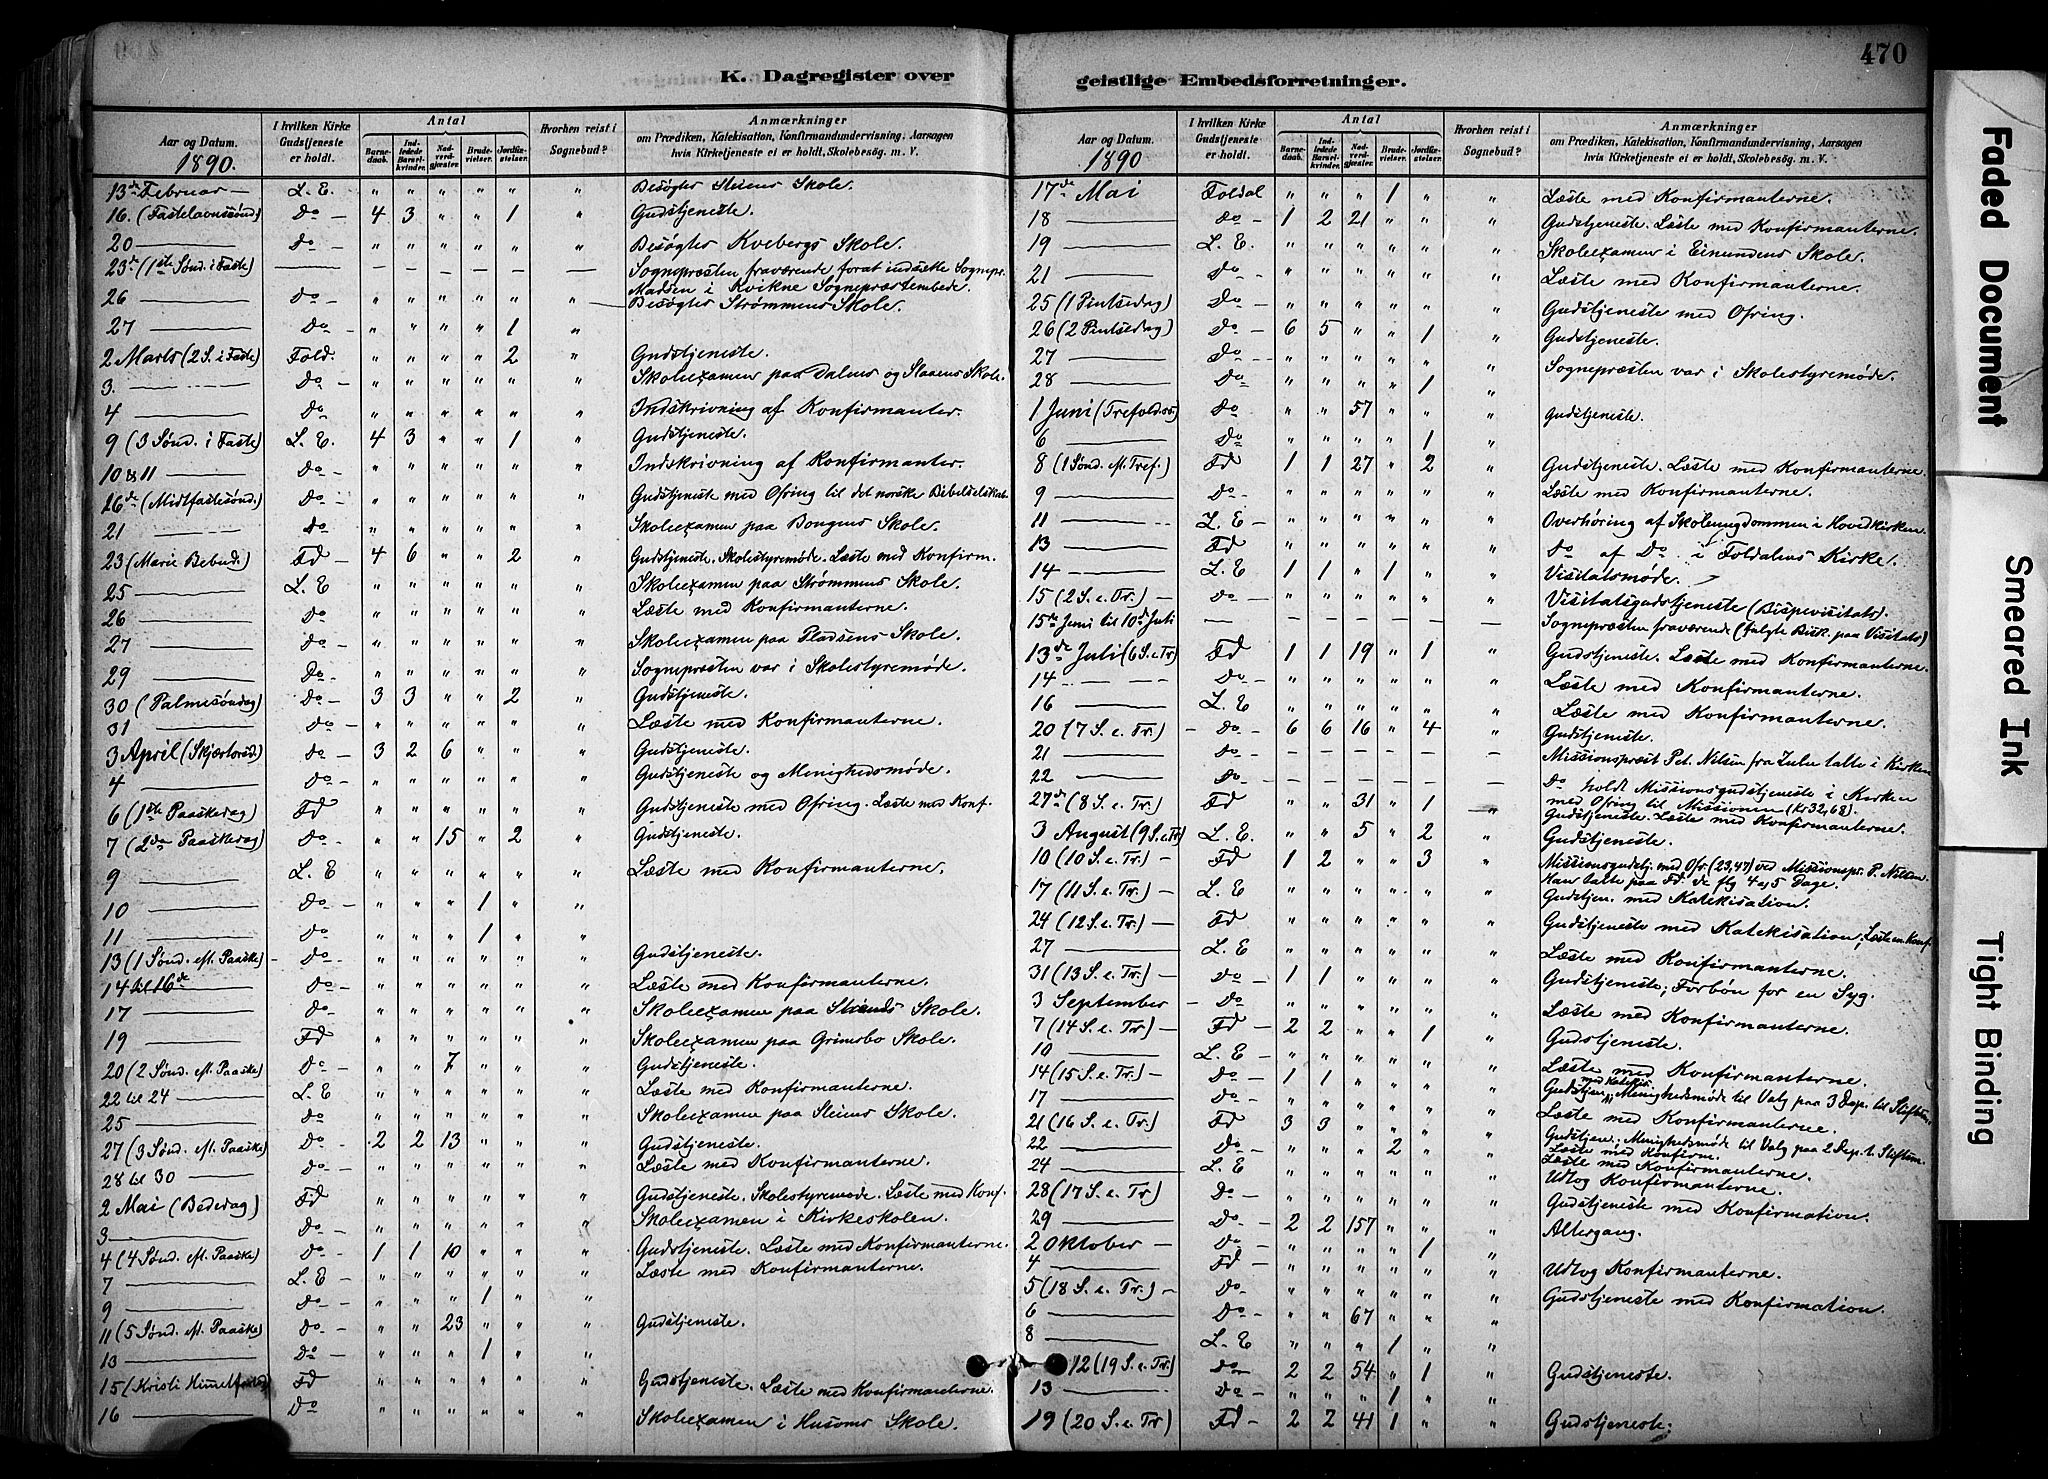 470
K. Dagregister over
geistlige Embedsforretninger.
Aar og Datum. 1890.
I hvilken Kirke Gudstjeneste er holdt.
Antal
Barne-daab. Ind-ledede Barsel-kvinder. Nad-verd-gjæster. Brude-vielser. Jordfæ-stelser.
Hvorhen reist i Sognebud?
Anmærkninger
om Prædiken, Katekisation, Konfirmandundervisning, Aarsagen
hvis Kirketjeneste ei er holdt, Skolebesøg. m. V.
13de Februar — L. E. " " " " " " Besøgte Steiens Skole.
16. (Fastelavnssønd) Do — 4 3 " " 1 " Gudstjeneste.
20 — Do — " " " " " " Besøgte Kvebergs Skole.
23de (1ste Sønd. i Faste) — — — — — — — Sognepræsten fraværende forat indsætte Sognepr. Madsen i Kvikne Sognepræstembede.
26 — Do — " " " " " " Besøgte Strømmens Skole.
27 — Do — " " " " 1 "
2 Marts (2 S. i Faste) Fold. " " " " 2 " Gudstjeneste.
3. — Do — " " " " " " Skoleexamen paa Dalens og Slaaens Skole.
4 — Do — " " " " " " Indskrivning af Konfirmanter.
9 (3 Sønd. i Faste) L. E. 4 3 " " 1 " Gudstjeneste.
10 & 11 — Do — " " " " " " Indskrivning af Konfirmanter.
16de (Midtfastesønd.) Do — " " " " " " Gudstjeneste med Ofring til det norske Bibelselskab.
21 — Do " " " " " " Skoleexamen paa Bongens Skole.
23 (Marie Bebud.) Fd — 4 6 " " 2 " Gudstjeneste. Skolestyremøde. Læste med Konfirm.
25 — L. E " " " " " " Skoleexamen paa Strømmens Skole.
26 — Do — " " " " " " Læste med Konfirmanterne.
27 — Do — " " " " " " Skoleexamen paa Pladsens Skole.
29 — Do — " " " " " " Sognepræsten var i Skolestyremøde.
30 (Palmesøndag) Do — 3 3 " " 2 " Gudstjeneste.
31 — Do — " " " " " " Læste med Konfirmanterne.
3 April (Skjærtorsd.) Do — 3 2 6 " " " Gudstjeneste.
4 — Do — " " " " " " Gudstjeneste og Menighedsmøde.
6 (1ste Paaskedag) Fd " " " " " " Gudstjeneste med Ofring. Læste med Konf.
7 (2den Paaskedag) Do — " " 15 " 2 " Gudstjeneste.
9 — L. E " " " " " " Læste med Konfirmanterne.
10 — Do — " " " 1 " "
11 — Do " " " 1 " "
13 (1 Sønd. eft. Paaske) — Do — " " " " " " Gudstjeneste.
14 til 16de Do — " " " " " " Læste med Konfirmanterne.
17 — Do — " " " " " " Skoleexamen paa Steiens Skole.
19 — Fd " " " " " " Skoleexamen paa Grimsbo Skole.
20 (2 Sønd. eft. Paaske) Do — " " 7 " " " Gudstjeneste.
22 til 24 — L. E " " " " " " Læste med Konfirmanterne.
25 — Do " " " " " " Skoleexamen paa Steiens Skole.
27 (3 Sønd. eft. Paaske) Do — 2 2 13 " " " Gudstjeneste.
28 til 30 — Do — " " " " " " Læste med Konfirmanterne.
2 Mai (Bededag) Fd " " " " " " Gudstjeneste. Skolestyremøde. Læste med Konf.
3 — Do — " " " " " " Skoleexamen i Kirkeskolen.
4 (4 Sønd. eft. Paaske) Do — 1 1 10 " " " Gudstjeneste. Læste med Konfirmanterne.
7 — L. E — " " " " " " Læste med Konfirmanterne.
9 — Do — " " " 1 " "
11 (5 Sønd. eft. Paaske) Do — " " 23 " " " Gudstjeneste.
13 — Do — " " " 1 " "
15 (Kristi Himmelf) Fd " " " " " " Gudstjeneste. Læste med Konfirmanterne.
16 — Do " " " " " " Skoleexamen i Husoms Skole.
Aar og Datum. 1890
I hvilken Kirke Gudstjeneste er holdt.
Antal
Barne-daab. Ind-ledede Barsel-kvinder. Nad-verd-gjæster. Brude-vielser. Jordfæ-stelser.
Hvorhen reist i Sognebud?
Anmærkninger
om Prædiken, Katekisation, Konfirmandundervisning, Aarsagen
hvis Kirketjeneste ei er holdt, Skolebesøg. m. V.
17de Mai Foldal " " " 1 " " Læste med Konfirmanterne.
18 — Do — 1 2 21 " " " Gudstjeneste. Læste med Konfirmanterne.
19 — L. E. " " " " " " Skoleexamen i Einundens Skole.
21 — Do — " " " " " " Læste med Konfirmanterne.
25 (1 Pintsedag) Do — " " " " " " Gudstjeneste med Ofring.
26 (2 Pintsedag) Do — 6 5 " " 1 " Gudstjeneste.
27 — Do — " " " " " " Sognepræsten var i Skolestyremøde.
28 — Do — " " " " 1 "
1 Juni (Trefoldss) Do — " " 57 " " " Gudstjeneste.
6 — Do " " " " 1 "
8 (1 Sønd. eft. Tref.) Fd 1 1 27 " 2 " Gudstjeneste. Læste med Konfirmanterne.
9 — Do — " " " " " " Læste med Konfirmanterne.
11 — L. E — " " " " " " Overhøring af Skoleungdommen i Hovedkirken
13 — Fd " " " " " " Do af Do i Foldalens Kirke.
14 — L. E 1 1 " 1 " " Visitatsmøde.
15 (2 S. e. Tr.) — Do — " " " " " " Visitatsgudstjeneste (Bispevisitats).
15de Juni til 10de Juli — — — — — — — Sognepræsten fraværende (fulgte Bisk. paa Visitats)
13de Juli (6 S. e. Tr) Fd 1 1 19 " 1 " Gudstjeneste. Læste med Konfirmanterne.
14 — Do — " " " " " " Læste med Konfirmanterne.
16 — L. E " " " " " " Læste med Konfirmanterne.
20 (7 S. e. Tr.) — Do — 6 6 16 " 4 " Gudstjeneste.
21 — Do — — — — — — — Missionsprest Pet. Nilsen fra Zulu talte i Kirken
22 — Do — — — — — — — Do holdt Missionsgudstjeneste i Kirken med Ofring til Missionen (Kr 32,68).
27de (8 S. e. Tr.) Fd " " 31 " 1 " Gudstjeneste. Læste med Konfirmanterne.
3 August (9 S. e. Tr) L. E. " " 5 " 2 " Gudstjeneste.
10 (10 S. e. Tr.) — Fd 1 2 " " 3 " Missionsgudstj. med Ofr. (23,47) ved Missionspr. P. Nilsen. Han talte paa Fd. de flg 4 a 5 Dage.
17 (11 S. e. Tr.) — L. E " " " " " " Gudstjen. med Katekisation.
24 (12 S. e. Tr.) — Fd " " " " " " Gudstjeneste med Katekisation; Læste m. Konf
27 — L. E " " " " " " Læste med Konfirmanterne.
31 (13 S. e. Tr.) — Do — 1 1 " " " " Gudstjeneste; Forbøn for en Syg.
3 September — Do " " " " " " Læste med Konfirmanterne.
7 (14 S. e. Tr.) — Fd — 2 2 " " 1 " Gudstjeneste.
10 — L. E — " " " " " " Læste med Konfirmanterne.
14 (15 S. e. Tr.) — Do — 1 1 " " " " Gudstjen. med Katekis. Menighedsmøde til Valg paa 3 Dep. til Stiftsm.
17 — Do — " " " " " " Læste med Konfirmanterne.
21 (16 S. e. Tr.) Fd 3 3 " " " " Gudstjen. Menighedsmøde til Valg paa 2 Dep. t. Stiftsm. Læste med Konfirm.
22 — Do — " " " 2 " "
24 — L. E " " " " " " Læste med Konfirmanterne.
28 (17 S. e. Tr) Do — " " " " " " Gudstjeneste med Konfirmation.
Udtog Konfirmanterne.
29 — Do — 2 2 157 " " " Altergang.
2 Oktober — Do — " " " " 1 "
4 — Fd — " " " " " " Udtog Konfirmanterne.
5 (18 S. e. Tr.) — Do — " " " " " " Gudstjeneste med Konfirmation.
6 — Do — " " 67 " " "
8 — L. E " " " 1 " "
12 (19 S. e. Tr) Do — 2 2 54 " 1 " Gudstjeneste.
13 — Do — " " " 1 " "
19 (20 S. e. Tr) Fd — 2 2 41 1 " " Gudstjeneste.
Faded Document
Smeared Ink
Tight Binding